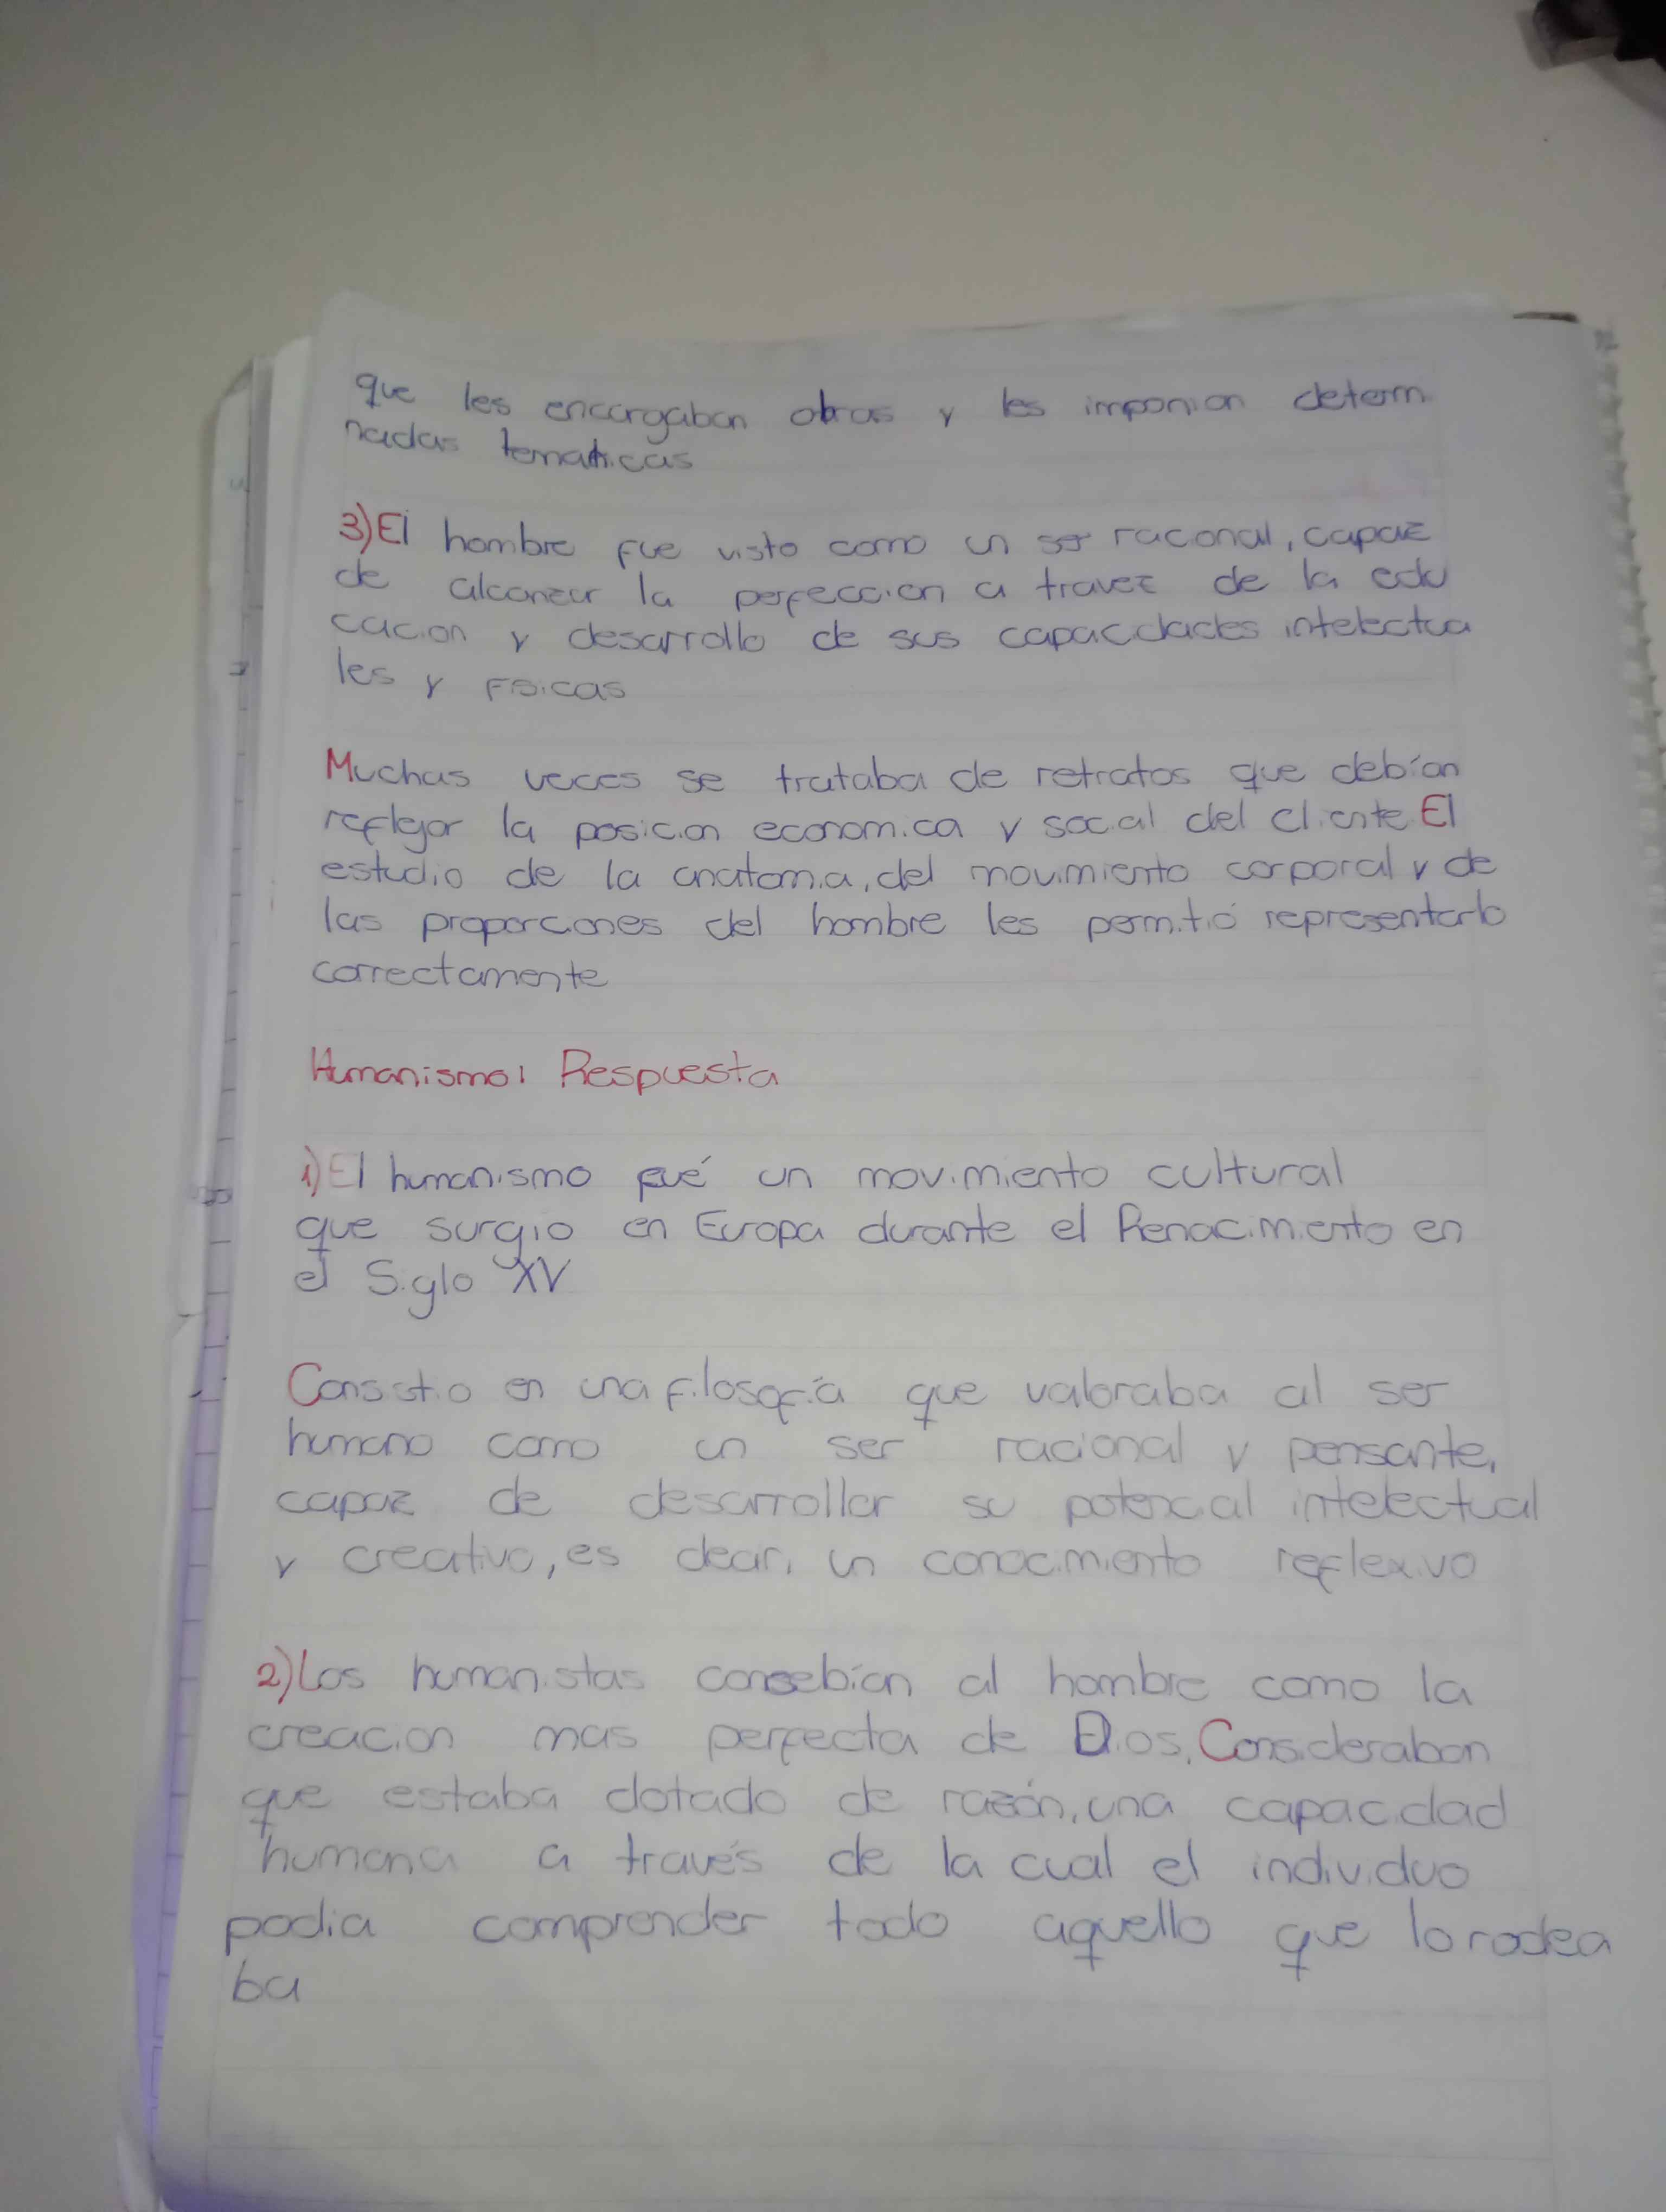 que les encargaban obras y les imponian determ
nadas tematicas
3) El hombre fue visto como un ser racional, capaz
de alcanzar la perfeccion a travez de la edu
cacion y desarrollo de sus capacidades intelectua
les y Fisicas
Muchas veces se trataba de retratos que debían
reflejar la posicion economica y social del cliente El
estudio de la anatomia, del movimiento corporal y de
las proporciones del hombre les permitió representarlo
correctamente
Humanismo: Respuesta
1) El humanismo fué un movimiento cultural
que surgio en Europa durante el Renacimiento en
el Siglo XV
Consistio en una filosofía que valoraba al ser
humano como un ser racional y pensante,
capaz de desarrollar su potencial intelectual
y creativo, es decir, un conocimiento reflexivo
2) Los humanistas consebían al hombre como la
creacion mas perfecta de Dios. Consideraban
que estaba dotado de razón, una capacidad
humana a través de la cual el individuo
podia comprender todo aquello que lo rodea
ba